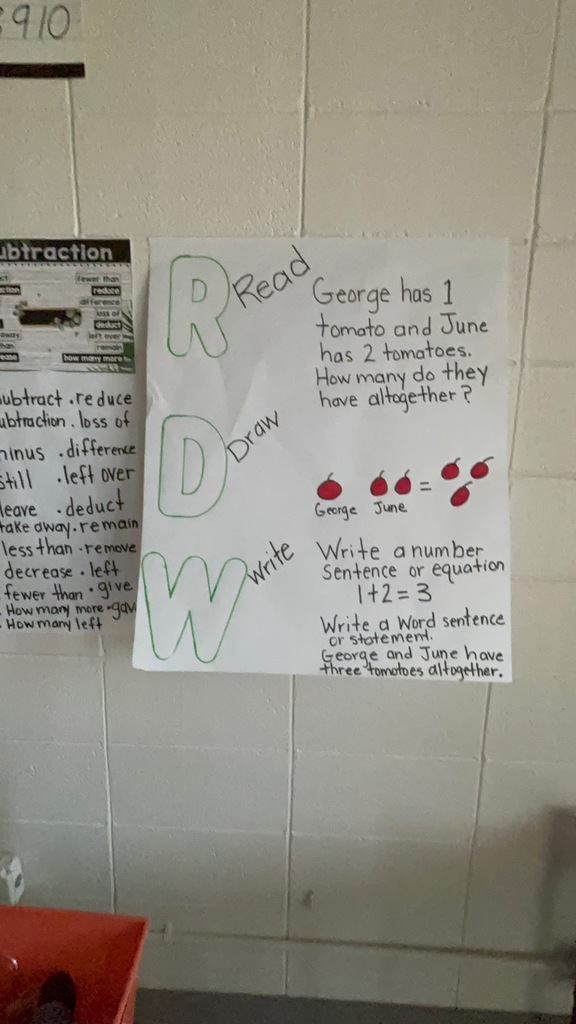 910
ubtraction
fewer than
reduce
difference
loss of
deduct
left over
remain
how many more
ubtract . reduce
ubtraction . loss of
inus . difference
still . left over
leave . deduct
take away . remain
less than . remove
decrease . left
fewer than . give
. How many more . gav
. How many left
R Read
George has 1
tomato and June
has 2 tomatoes.
How many do they
have altogether?
D Draw
=
George June
W Write
Write a number
sentence or equation
1+2=3
Write a Word sentence
or statement.
George and June have
three tomatoes altogether.